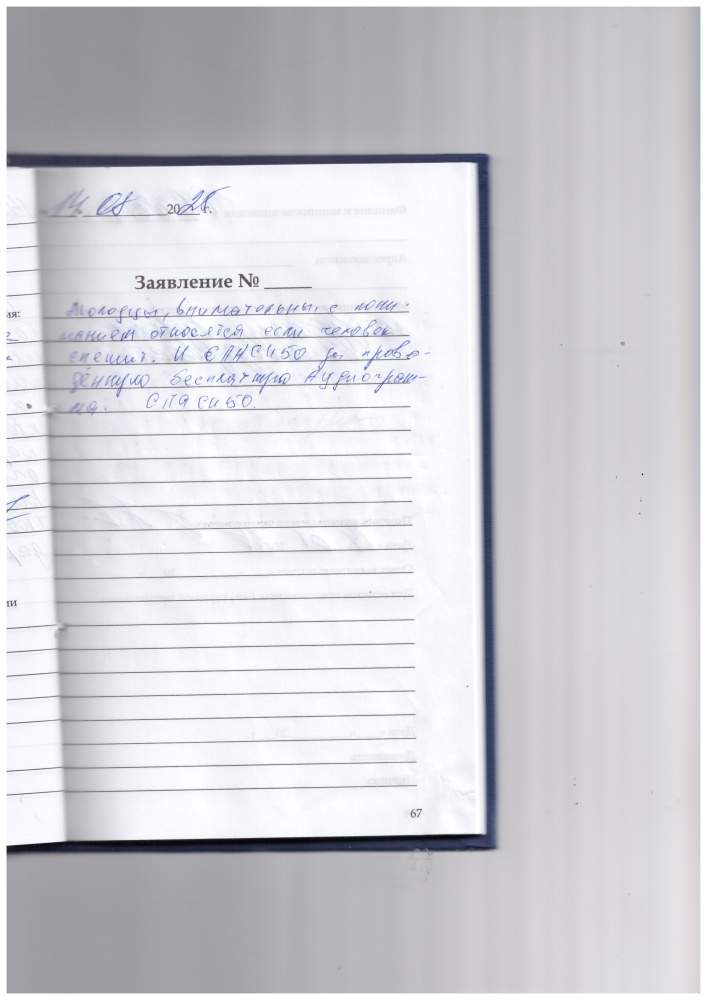 14 08 2025 г.
Заявление №
Молодцы, внимательны, с пони-
манием относятся если человек
спешит. И СПАСИБО за прове-
дённую бесплатную Аудиограм-
ма. СПАСИБО.
ия:
ии
67